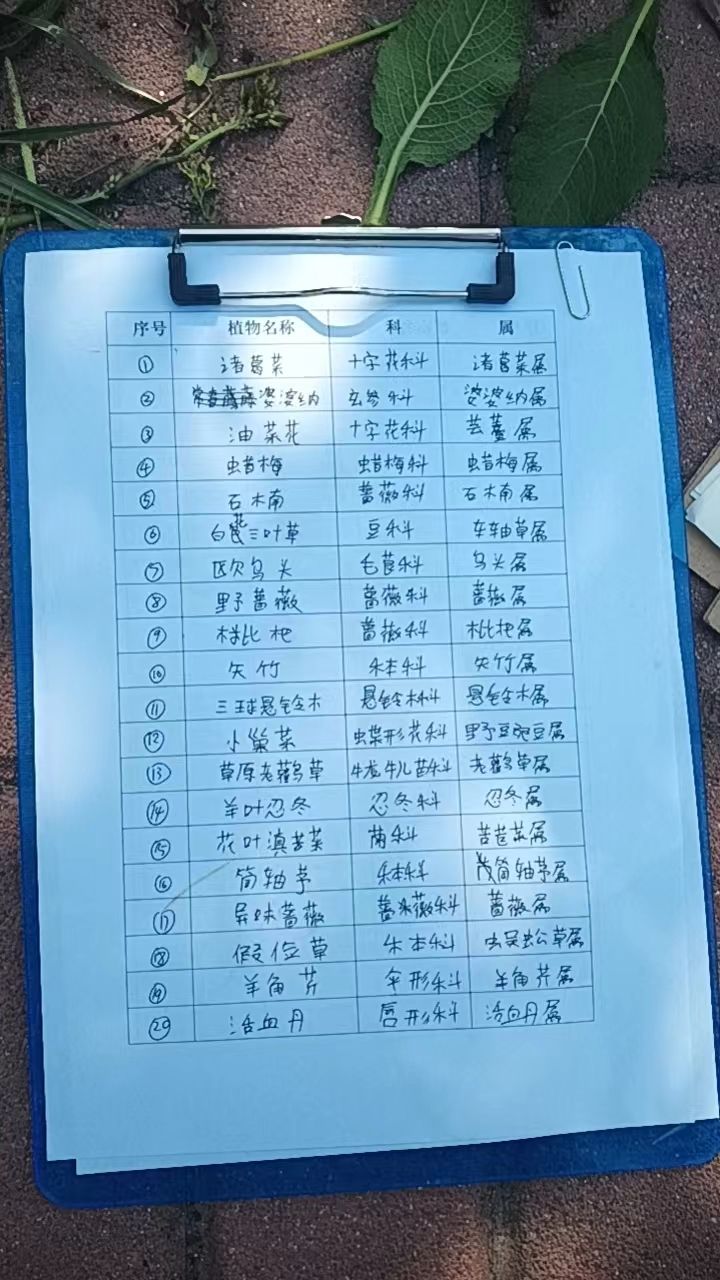 序号 植物名称 科 属
① 诸葛菜 十字花科 诸葛菜属
② 婆婆纳 玄参科 婆婆纳属
③ 油菜花 十字花科 芸薹属
④ 蜡梅 蜡梅科 蜡梅属
⑤ 石木南 蔷薇科 石木南属
⑥ 白花三叶草 豆科 车轴草属
⑦ 欧乌头 毛茛科 乌头属
⑧ 野蔷薇 蔷薇科 蔷薇属
⑨ 枇杷 蔷薇科 枇杷属
⑩ 矢竹 禾本科 矢竹属
⑪ 三球悬铃木 悬铃木科 悬铃木属
⑫ 小巢菜 蝶形花科 野豌豆属
⑬ 草原老鹳草 牻牛儿苗科 老鹳草属
⑭ 羊叶忍冬 忍冬科 忍冬属
⑮ 花叶滇苦菜 菊科 苦苣菜属
⑯ 筒轴茅 禾本科 筒轴茅属
⑰ 异味蔷薇 蔷薇科 蔷薇属
⑱ 假俭草 禾本科 蜈蚣草属
⑲ 羊角芹 伞形科 羊角芹属
⑳ 活血丹 唇形科 活血丹属